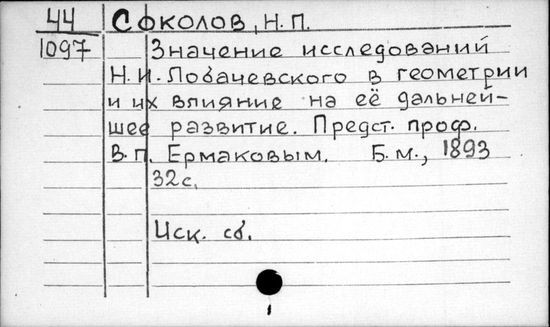 44 Соколов, Н.П.
1097 Значение исследований
Н.И. Лобачевского в геометрии
и их влияние на её дальней-
шее развитие. Предст. проф.
В.П. Ермаковым. Б.м., 1893
32с.
Иск. сб.